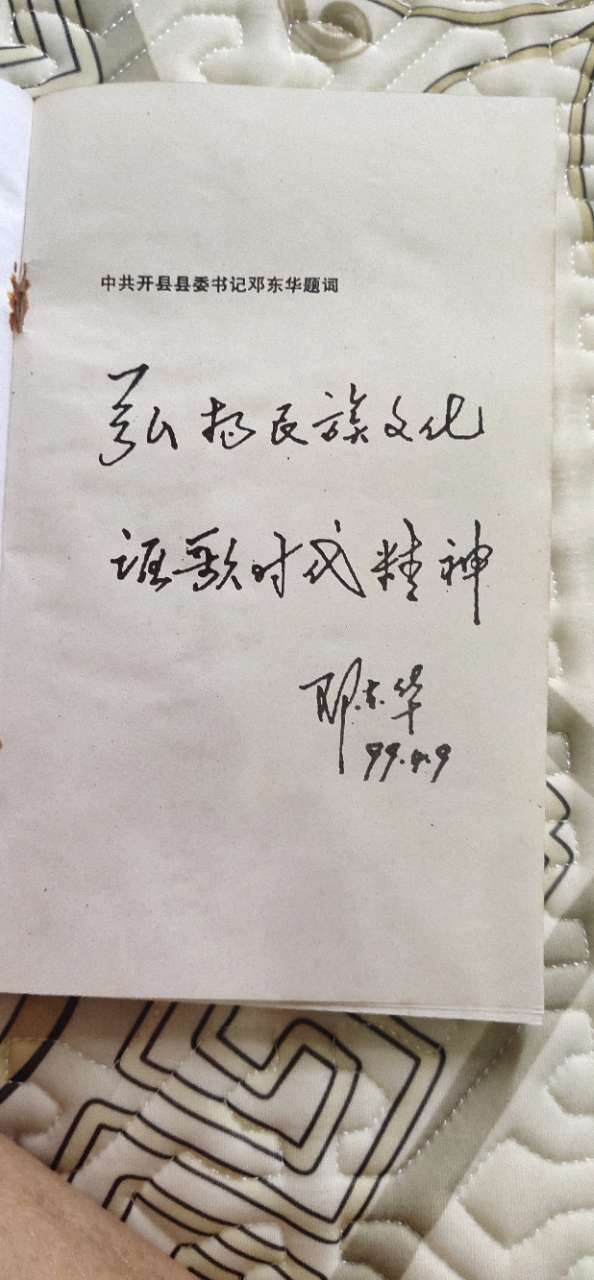 中共开县县委书记邓东华题词
弘扬民族文化
讴歌时代精神
邓东华
99.9.9